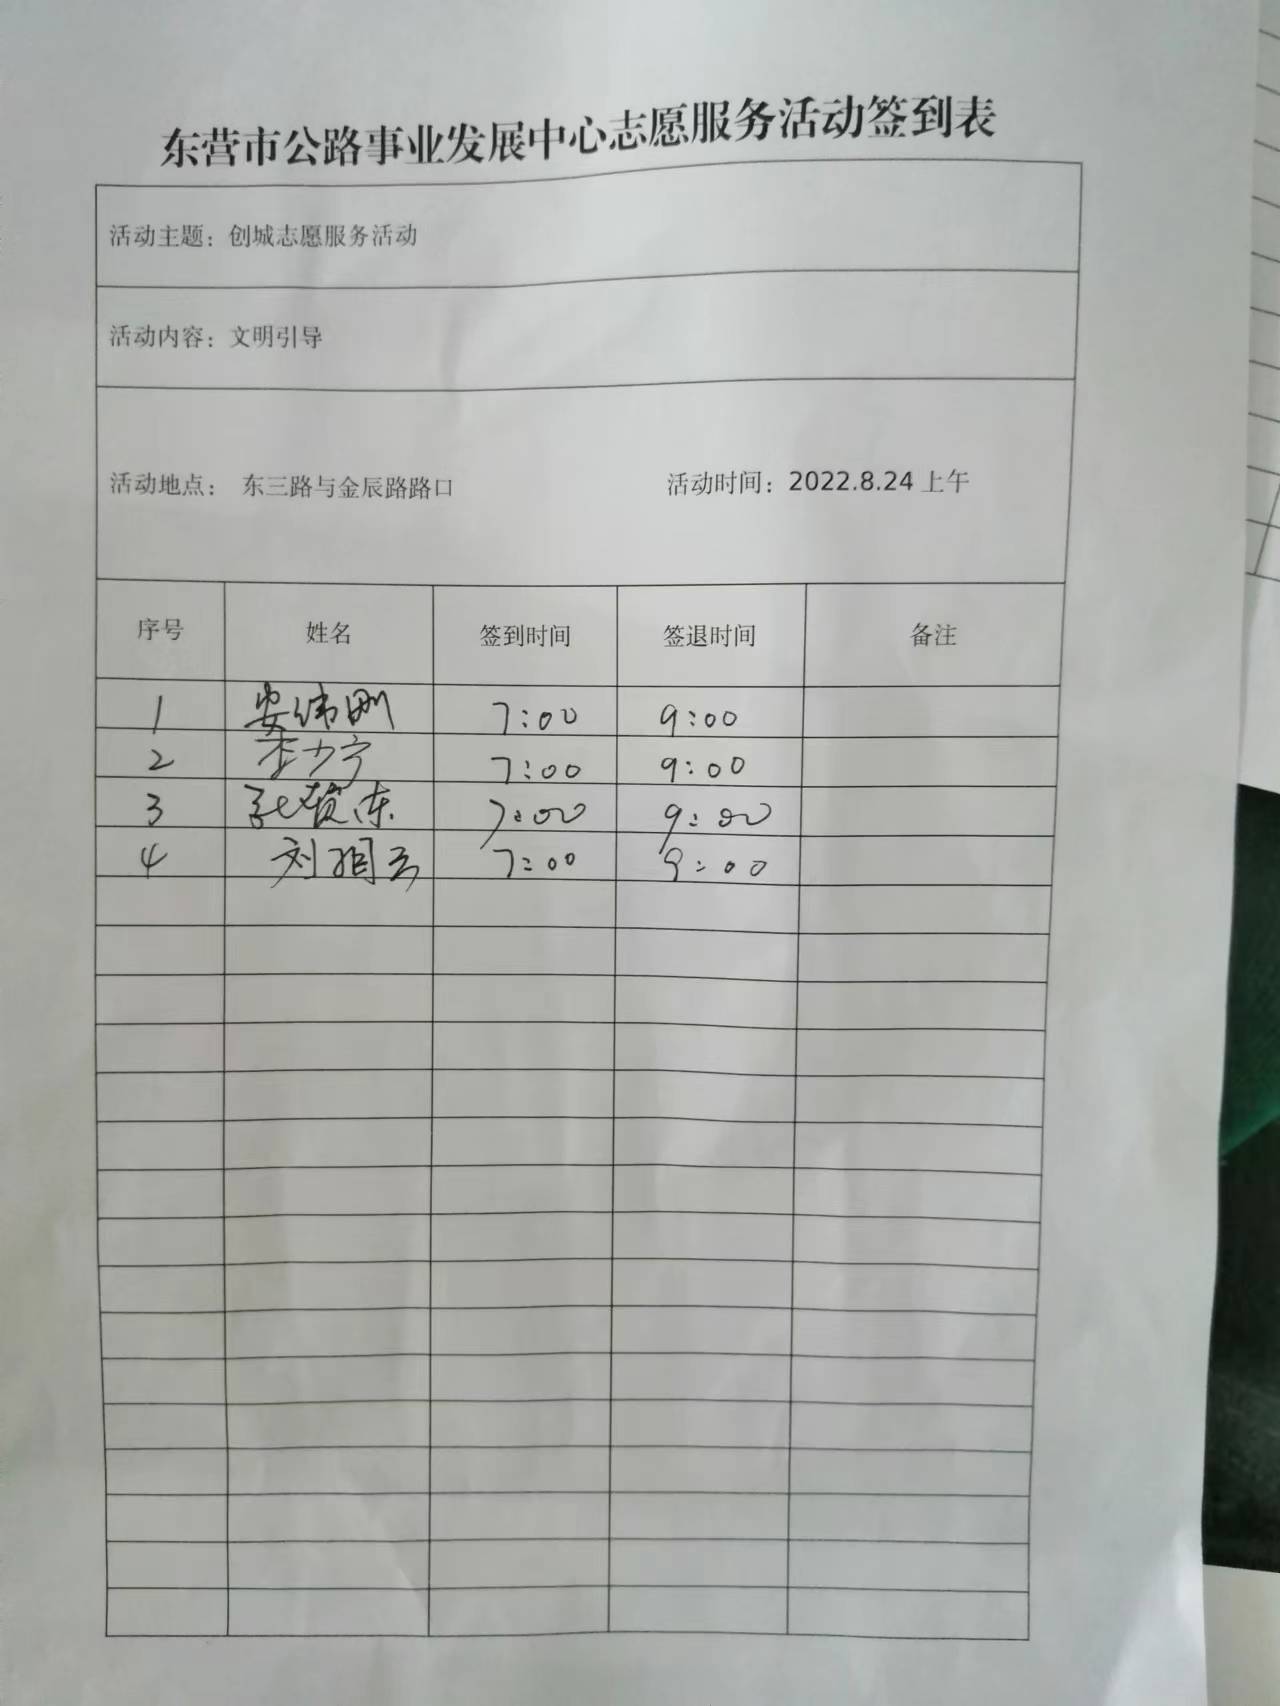 东营市公路事业发展中心志愿服务活动签到表
活动主题：创城志愿服务活动
活动内容：文明引导
活动地点： 东三路与金辰路路口 活动时间：2022.8.24 上午
序号 姓名 签到时间 签退时间 备注
1 安纬刚 7:00 9:00
2 李少宁 7:00 9:00
3 7:00 9:00
4 刘相云 7:00 9:00